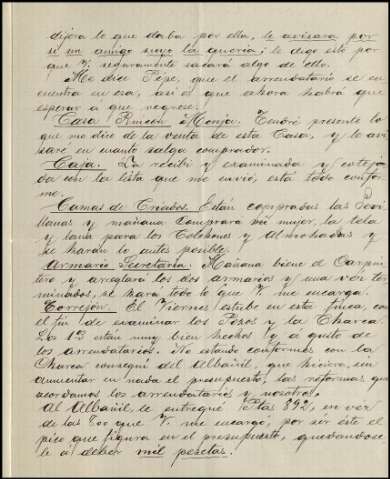 dijera lo que daba por ella, le avisara por
si un amigo suyo la queria; le digo esto por
que V. seguramente sacará algo de ello.
Me dice Pepe, que el arrendatario se en
cuentra en esa, asi es que ahora habrá que
esperar á que regrese.
Casa Rincón Monja. Tendré presente lo
que me dice de la venta de esta Casa, y le avi
saré en cuanto salga comprador.
Caja. La recibi y examinada y coteja
da con la lista que me envió, está todo confor
me.
Camas de Criados. Están compradas las
y mañana comprará mi mujer, la tela
y lana para los Colchones y Almohadas y
se harán lo antes posible.
Armario Secretaria. Mañana viene el Carpin
tero y arreglará los dos armarios y una vez ter
minados, se hará todo lo que V. me encarga.
Torrejón. El Viernes estube en esta finca, con
el fin de examinar los Pozos y la Charca.
Los 1os están muy bien hechos y á gusto de
los arrendatarios. No estando conformes con la
Charca conseguí del Albañil, que hiciera, sin
aumentar en nada el presupuesto, las reformas que
acordamos los arrendatarios y nosotros.
Al Albañil, le entregué Ptas 892, en vez
de las 700 que V. me encargó, por ser éste el
pico que figura en el presupuesto, quedandose
le á deber mil pesetas.